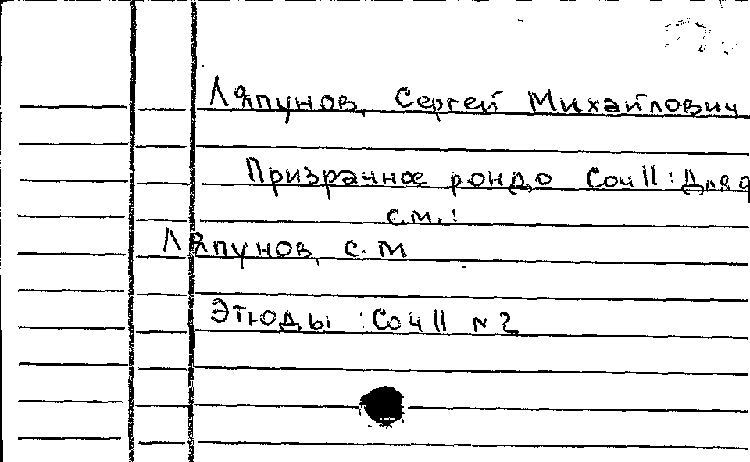 Ляпунов, Сергей Михайлович
Призрачное рондо Соч 11 : Для ф
с.м.:
Ляпунов, С. М
Этюды : Соч 11 № 2